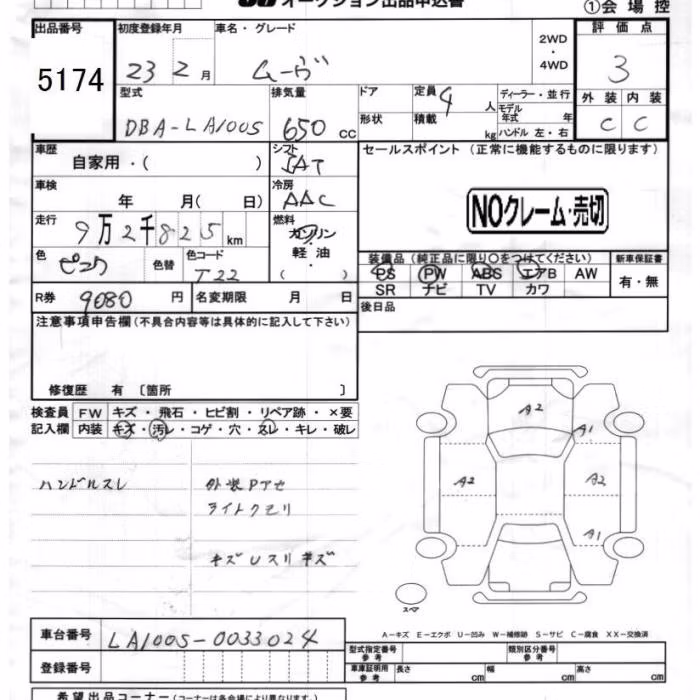 オークション出品申込書
①会場控
出品番号 初度登録年月 車名・グレード 2WD・4WD 評価点
5174 23 2月 ムーヴ 3
型式 排気量 ドア 定員 4人 ディーラー・並行 外装 内装
DBA-LA100S 650cc 形状 積載 kg モデル年式 年 C C
ハンドル 左・右
車歴 自家用・( ) シフト IAT セールスポイント (正常に機能するものに限ります)
車検 年 月( 日) 冷房 AAC
NOクレーム・売切
走行 9万2千825km 燃料 ガソリン・軽油・( )
色 ピンク 色替 色コード T22
装備品 (純正品に限り○をつけてください) 新車保証書
PS PW ABS エアB AW 有・無
SR ナビ TV カワ
R券 9080円 名変期限 月 日 後日品
注意事項申告欄(不具合内容等は具体的に記入して下さい)
修復歴 有 〔箇所 〕
検査員 FW キズ・飛石・ヒビ割・リペア跡・×要
記入欄 内装 キズ・汚レ・コゲ・穴・スレ・キレ・破レ
A2
A1
A2
A2
A1
ハンドルスレ 外装Pアセ
ライトクモリ
キズUスリキズ
スペア
A-キズ E-エクボ U-凹み W-補修跡 S-サビ C-腐食 XX-交換済
車台番号 LA100S-0033024
型式指定番号 参考 類別区分番号 参考
登録番号
車庫証明用 参考 長さ cm 幅 cm 高さ cm
希望出品コーナー(コーナーは各会場により異なります。)